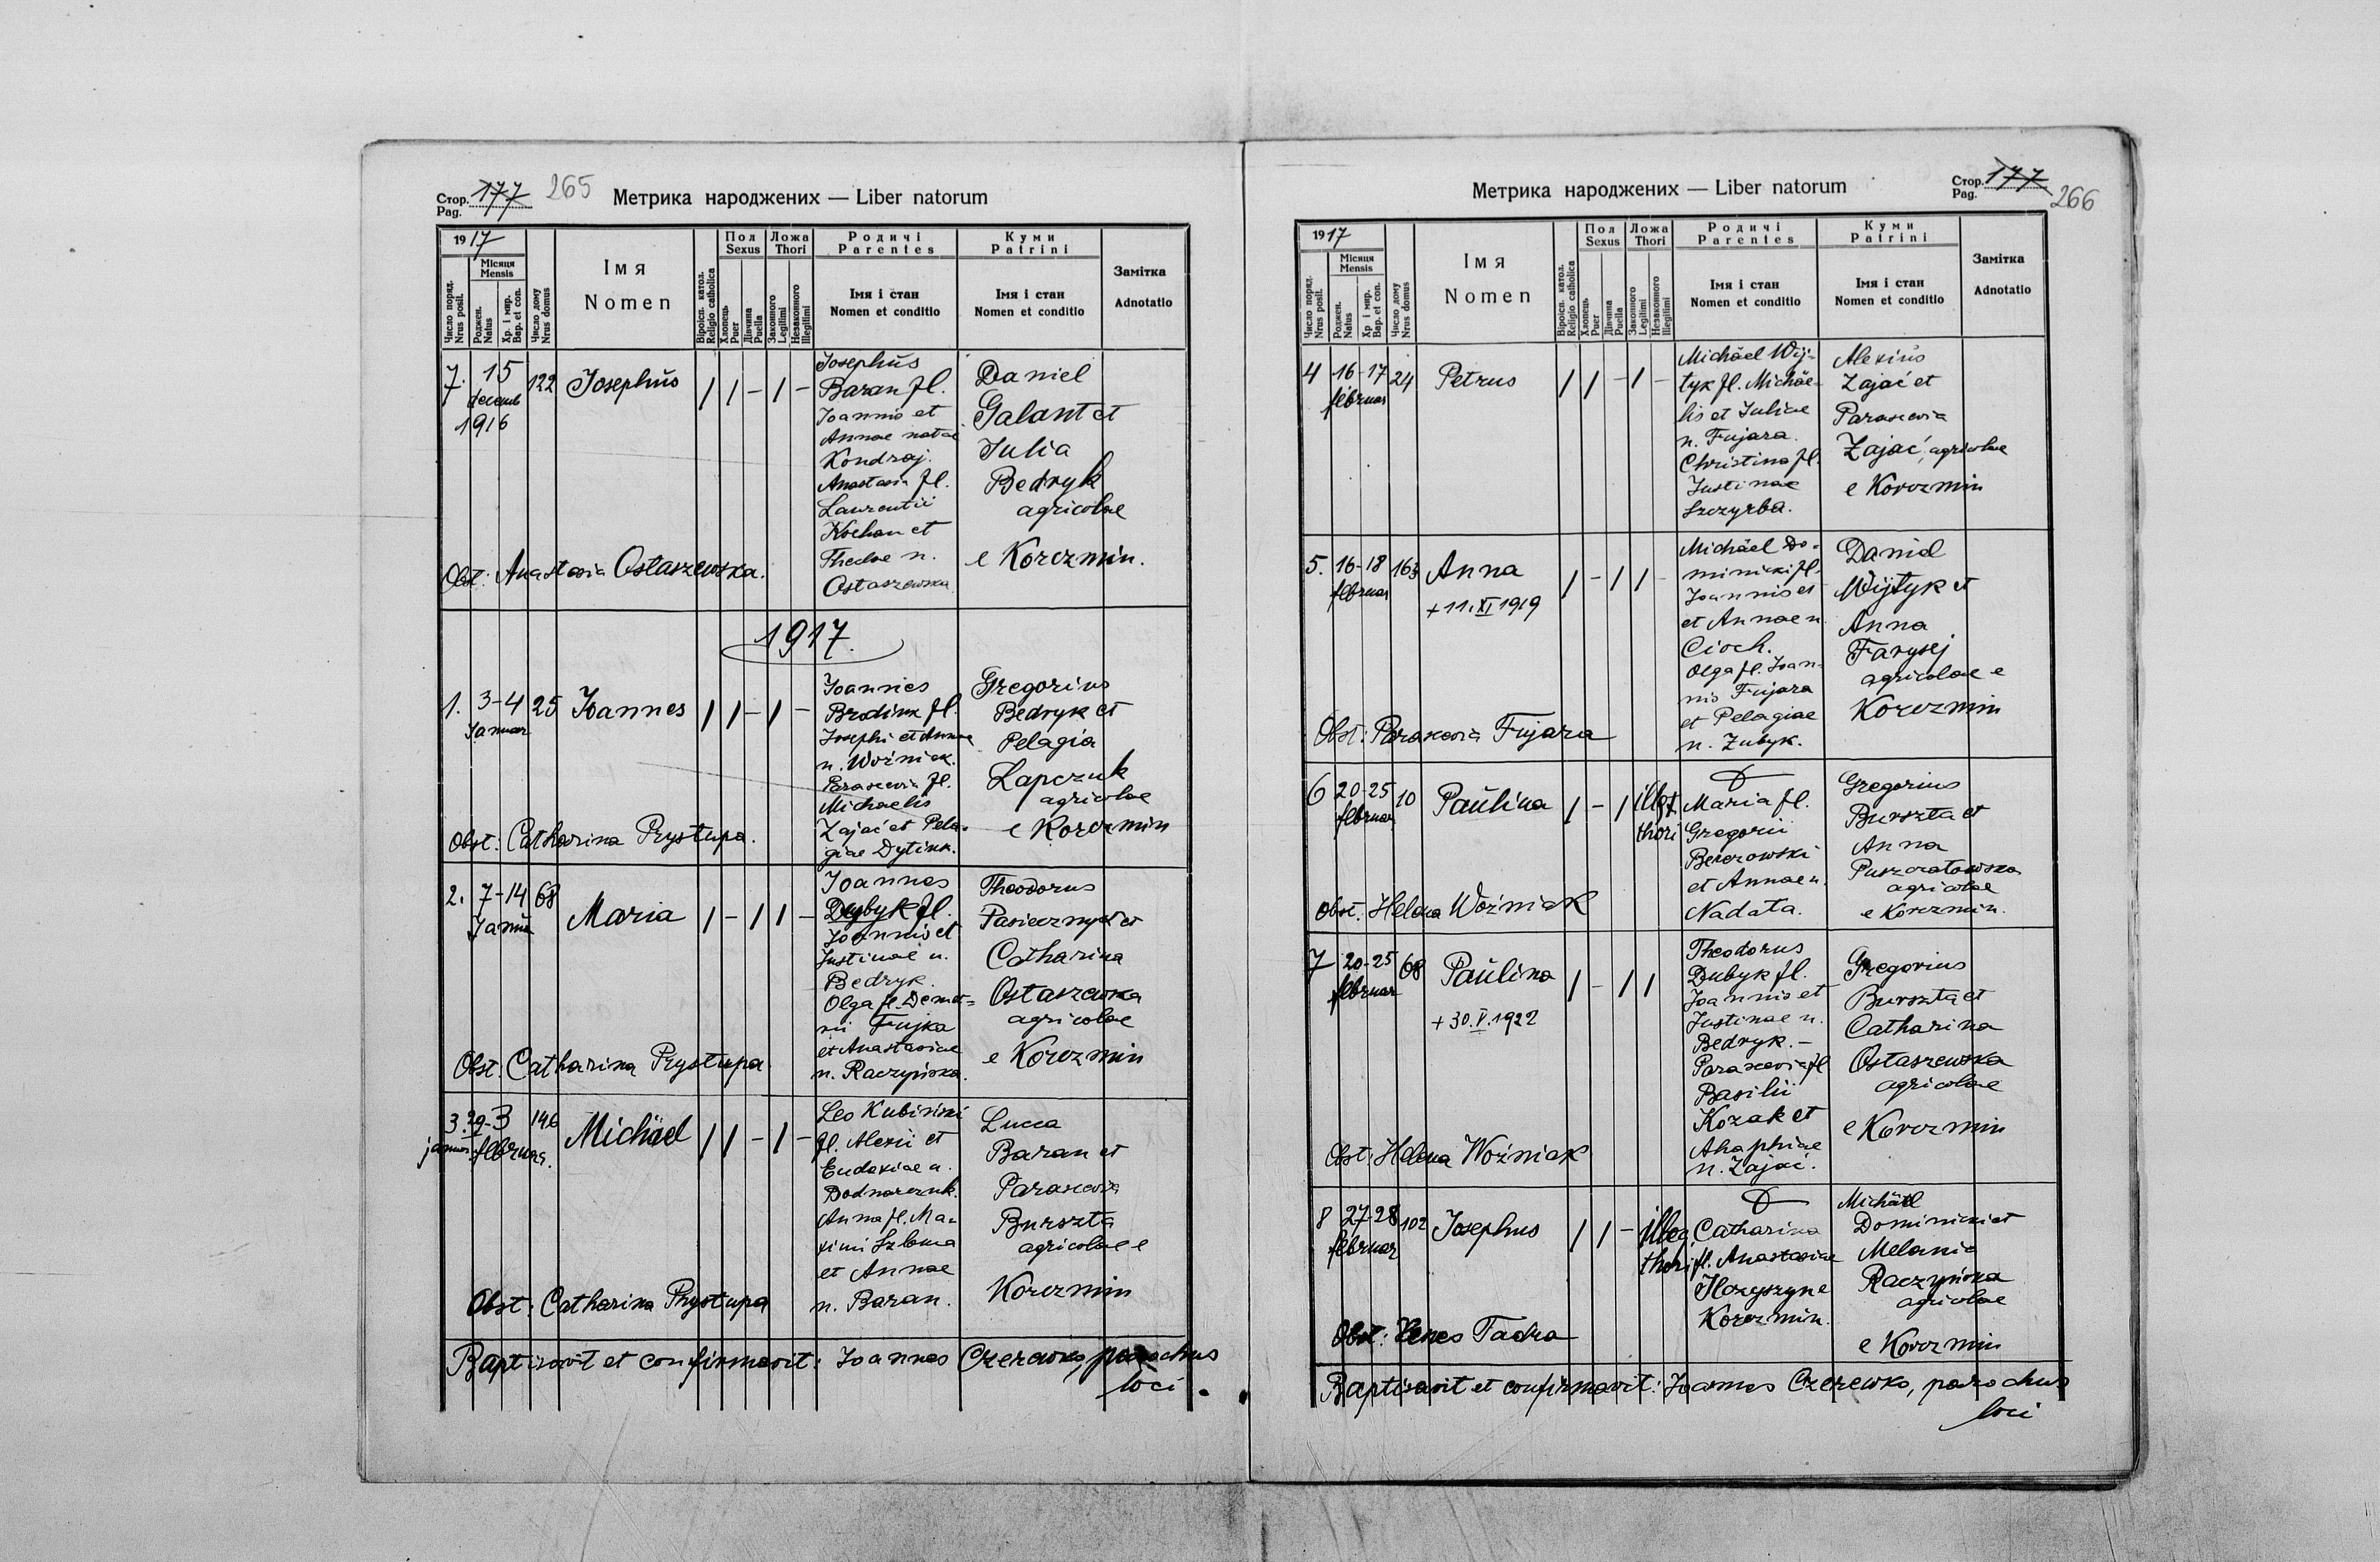 Стор. 177 265
Pag.
Метрика народжених — Liber natorum
1917
Число поряд. Nrus posit.
Місяця Mensis
Роджен. Natus
Хр. і мир. Bap. et con.
Число дому Nrus domus
Імя
Nomen
Віроісп. катол. Religio catholica
Пол Sexus
Хлопець Puer
Дївчина Puella
Ложа Thori
Законного Legitimi
Незаконного Illegitimi
Родичі
Parentes
Імя і стан
Nomen et conditio
Куми
Patrini
Імя і стан
Nomen et conditio
Замітка
Adnotatio
7. 15 122 Josephus / / - / -
decemb
1916
Josephus
Baran fl.
Joannis et
Annae natae
Kondraj.
Anastasia fl.
Laurentii
Kochan et
Theclae n.
Ostaszewska
Daniel
Galant et
Julia
Bedryk
agricolae
e Korczmin.
Obst: Anastasia Ostaszewska.
1917.
1. 3-4 25 Joannes / / - / -
Januar
Joannes
Brodiuk fl.
Josephi et Annae
n. Woźniak.
Parascevia fl.
Michaelis
Zajać et Pela-
giae Dytiuk.
Gregorius
Bedryk et
Pelagia
Łapczuk
agricolae
e Korczmin
Obst: Catharina Prystupa.
2. 7-14 68 Maria / - / / -
Janua
Joannes
Dubyk fl.
Joannis et
Justinae n.
Bedryk.
Olga fl. Demet-
rii Fujka
et Anastasiae
n. Raczyńska.
Theodorus
Pasicznyk et
Catharina
Ostaszewska
agricolae
e Korczmin
Obst. Catharina Prystupa
3. 29-3 146 Michäel / / - / -
januar februar.
Leo Kubiński
fl. Alexii et
Eudoxiae n.
Bodnarczuk.
Anna fl. Ma-
ximi Szloma
et Annae
n. Baran.
Lucca
Baran et
Parascevia
Burszta
agricolae e
Korczmin
Obst: Catharina Prystupa
Baptisavit et confirmavit: Joannes Czerewko, parochus
loci.
Метрика народжених — Liber natorum
Стор. 177
Pag. 266
1917
Число поряд. Nrus posit.
Місяця Mensis
Роджен. Natus
Хр. і мир. Bap. et con.
Число дому Nrus domus
Імя
Nomen
Віроісп. катол. Religio catholica
Пол Sexus
Хлопець Puer
Дївчина Puella
Ложа Thori
Законного Legitimi
Незаконного Illegitimi
Родичі
Parentes
Імя і стан
Nomen et conditio
Куми
Patrini
Імя і стан
Nomen et conditio
Замітка
Adnotatio
4 16-17 24 Petrus / / - / -
februar
Michäel Wij-
tyk fl. Michäe-
lis et Juliae
n. Fujara.
Christina fl.
Justinae
Szczyrba.
Alexius
Zajać et
Parascevia
Zajać, agricolae
e Korczmin
5. 16-18 163 Anna / - / / -
februar
+ 11. XI 1919
Michäel Do-
minicki fl.
Joannis et
et Annae n.
Cioch.
Olga fl. Joan-
nis Fujara
et Pelagiae
n. Zubyk.
Daniel
Wijtyk et
Anna
Farysej
agricolae e
Korczmin
Obst: Parascevia Fujara
6 20-25 10 Paulina / - / illgt.
februar thori
Maria fl.
Gregorii
Bererowski
et Annae n.
Nadata.
Gregorius
Burszta et
Anna
agricolae
e Korczmin.
Obst. Helena Woźniak
7 20-25 68 Paulina / - / /
februar
+ 30. V. 1922
Theodorus
Dubyk fl.
Joannis et
Justinae n.
Bedryk. -
Parascevia fl
Basilii
Kozak et
Ahaphiae
n. Zajać.
Gregorius
Burszta et
Catharina
Ostaszewska
agricolae
e Korczmin
Obst: Helena Woźniak
8 27-28 102 Josephus / / - illeg
februar thori
Catharina
fl. Anastasiae
Korczmin.
Michäel
Dominicki et
Melania
Raczyńska
agricolae
e Korczmin
Obst: Tacka
Baptisavit et confirmavit: Joannes Czerewko, parochus
loci